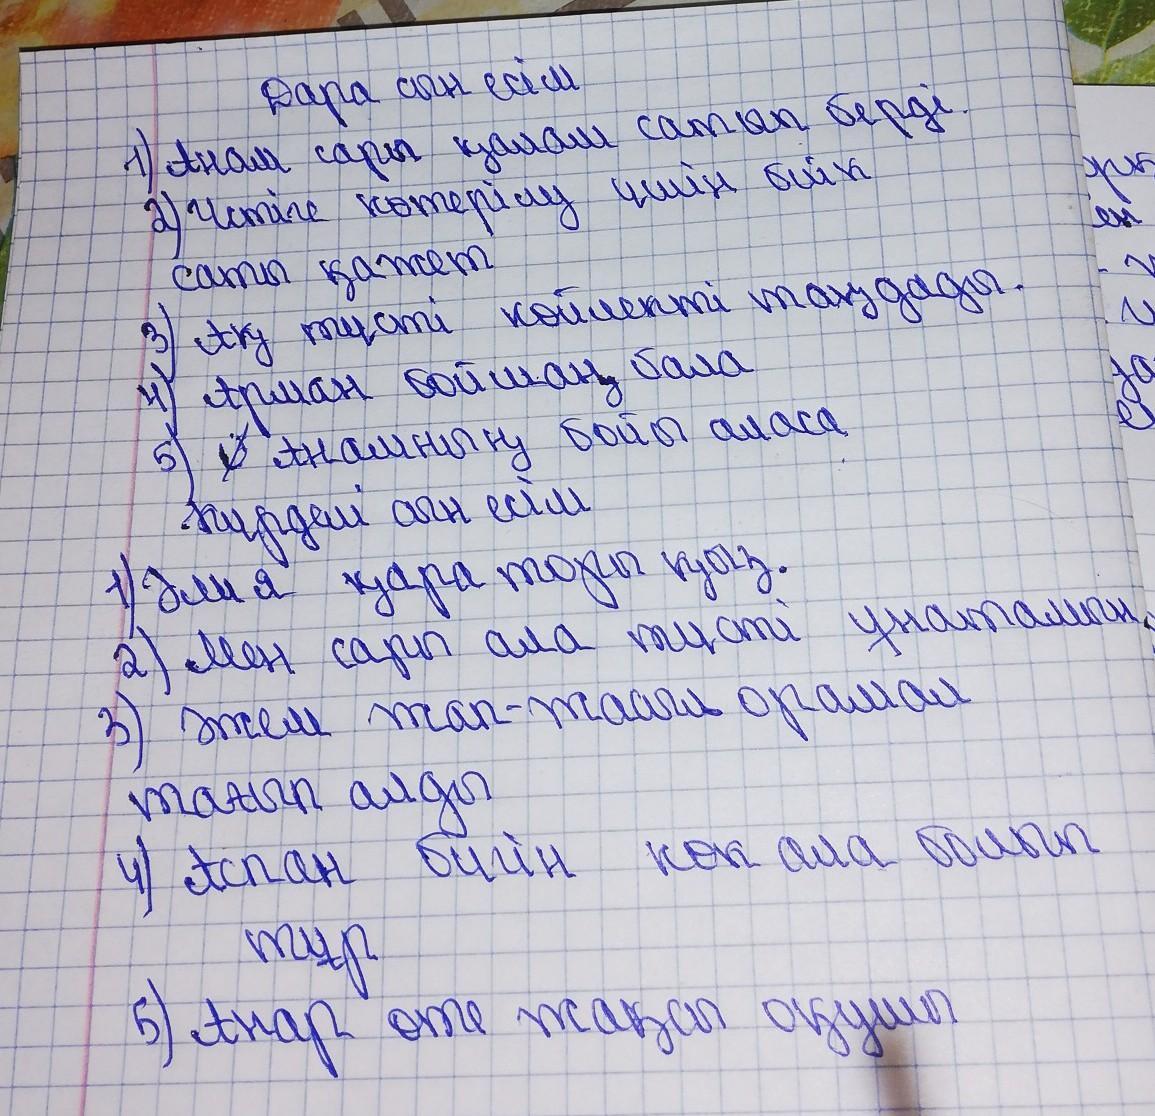 Дара сын есім
1) Анам сары қалам сатып берді.
2) Үстіге көтерілу үшін биік
саты қажет
3) Ақ түсті көйлекті таңдады.
4) Арман бойшаң бала
5) Анамның бойы аласа
Күрделі сын есім
1) Әлия қара торы қыз.
2) Мен сары ала түсті ұнатамын.
3) Әжем жап-жасыл орамал
тағып алды
4) Аспан бүгін көк ала болып
тұр
5) Анар өте жақсы оқушы